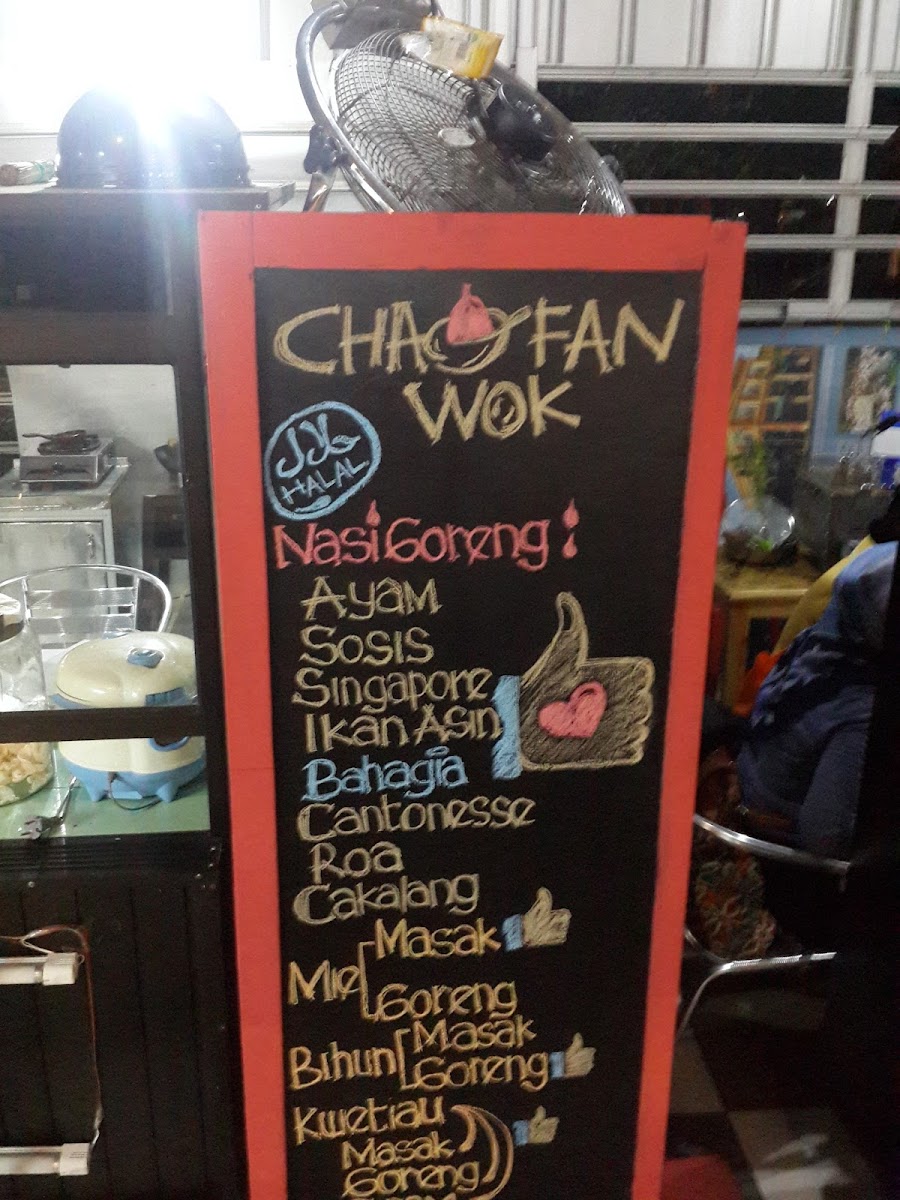 CHAO FAN
WOK
HALAL
Nasi Goreng :
Ayam
Sosis
Singapore
Ikan Asin
Bahagia
Cantonesse
Roa
Cakalang
Mie Masak
Goreng
Bihun Masak
Goreng
Kwetiau
Masak
Goreng